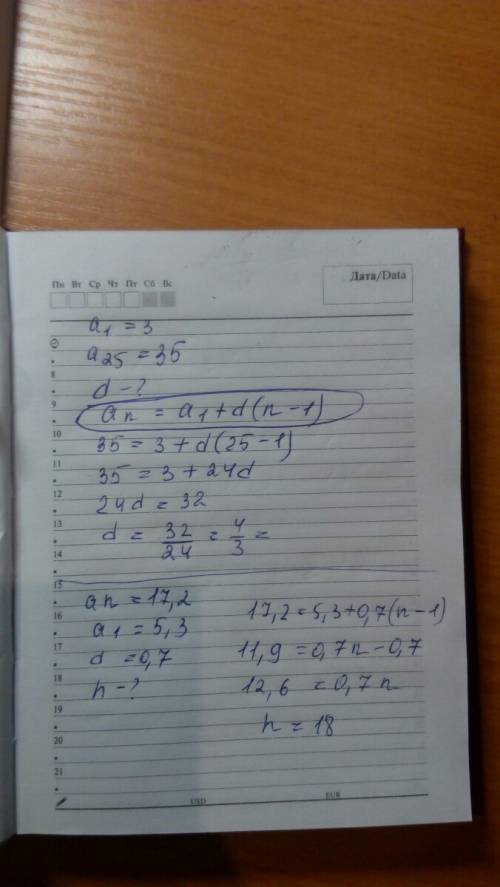 Пн Вт Ср Чт Пт Сб Вс
Дата/Data
a₁ = 3
a₂₅ = 35
8
d - ?
9
aₙ = a₁ + d(n - 1)
10
35 = 3 + d(25 - 1)
11
35 = 3 + 24d
12
24d = 32
13
d = 32/24 = 4/3 =
14
15
aₙ = 17,2
16
a₁ = 5,3
17
d = 0,7
18
n - ?
19
20
21
17,2 = 5,3 + 0,7(n - 1)
11,9 = 0,7n - 0,7
12,6 = 0,7n
n = 18
USD
EUR